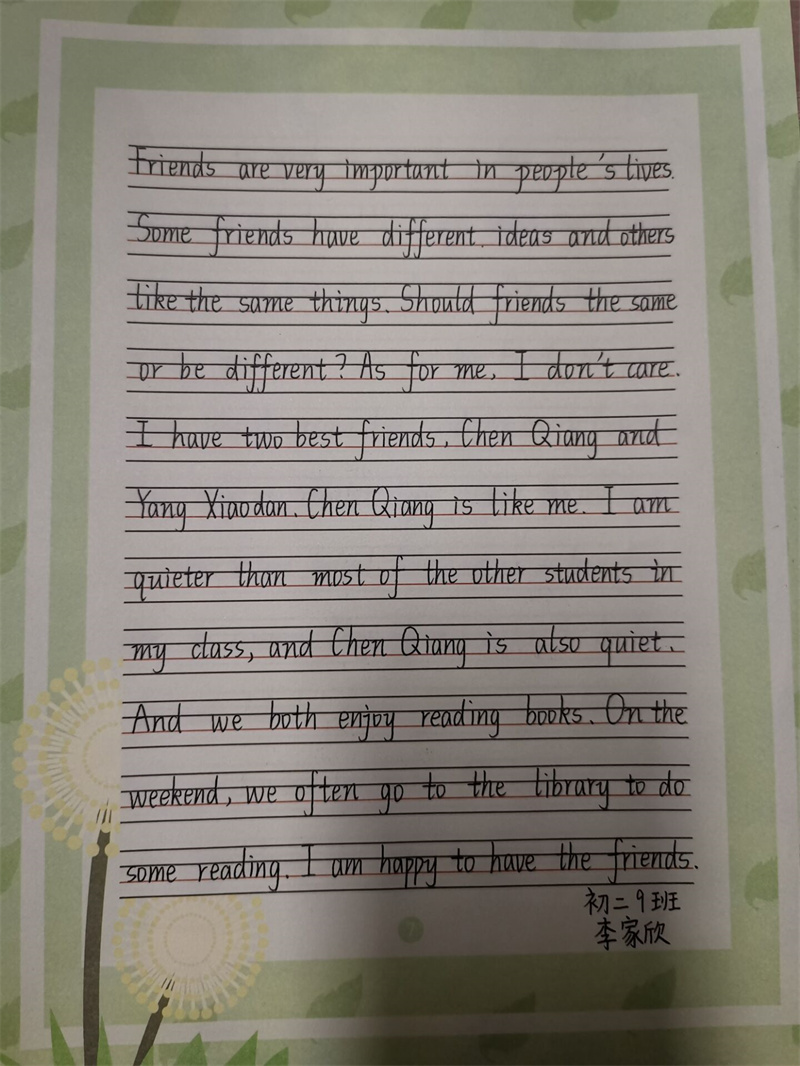 Friends are very important in people's lives.
Some friends have different ideas and others
like the same things. Should friends the same
or be different? As for me, I don't care.
I have two best friends, Chen Qiang and
Yang Xiaodan. Chen Qiang is like me. I am
quieter than most of the other students in
my class, and Chen Qiang is also quiet.
And we both enjoy reading books. On the
weekend, we often go to the library to do
some reading. I am happy to have the friends.
初二9班
李家欣
7